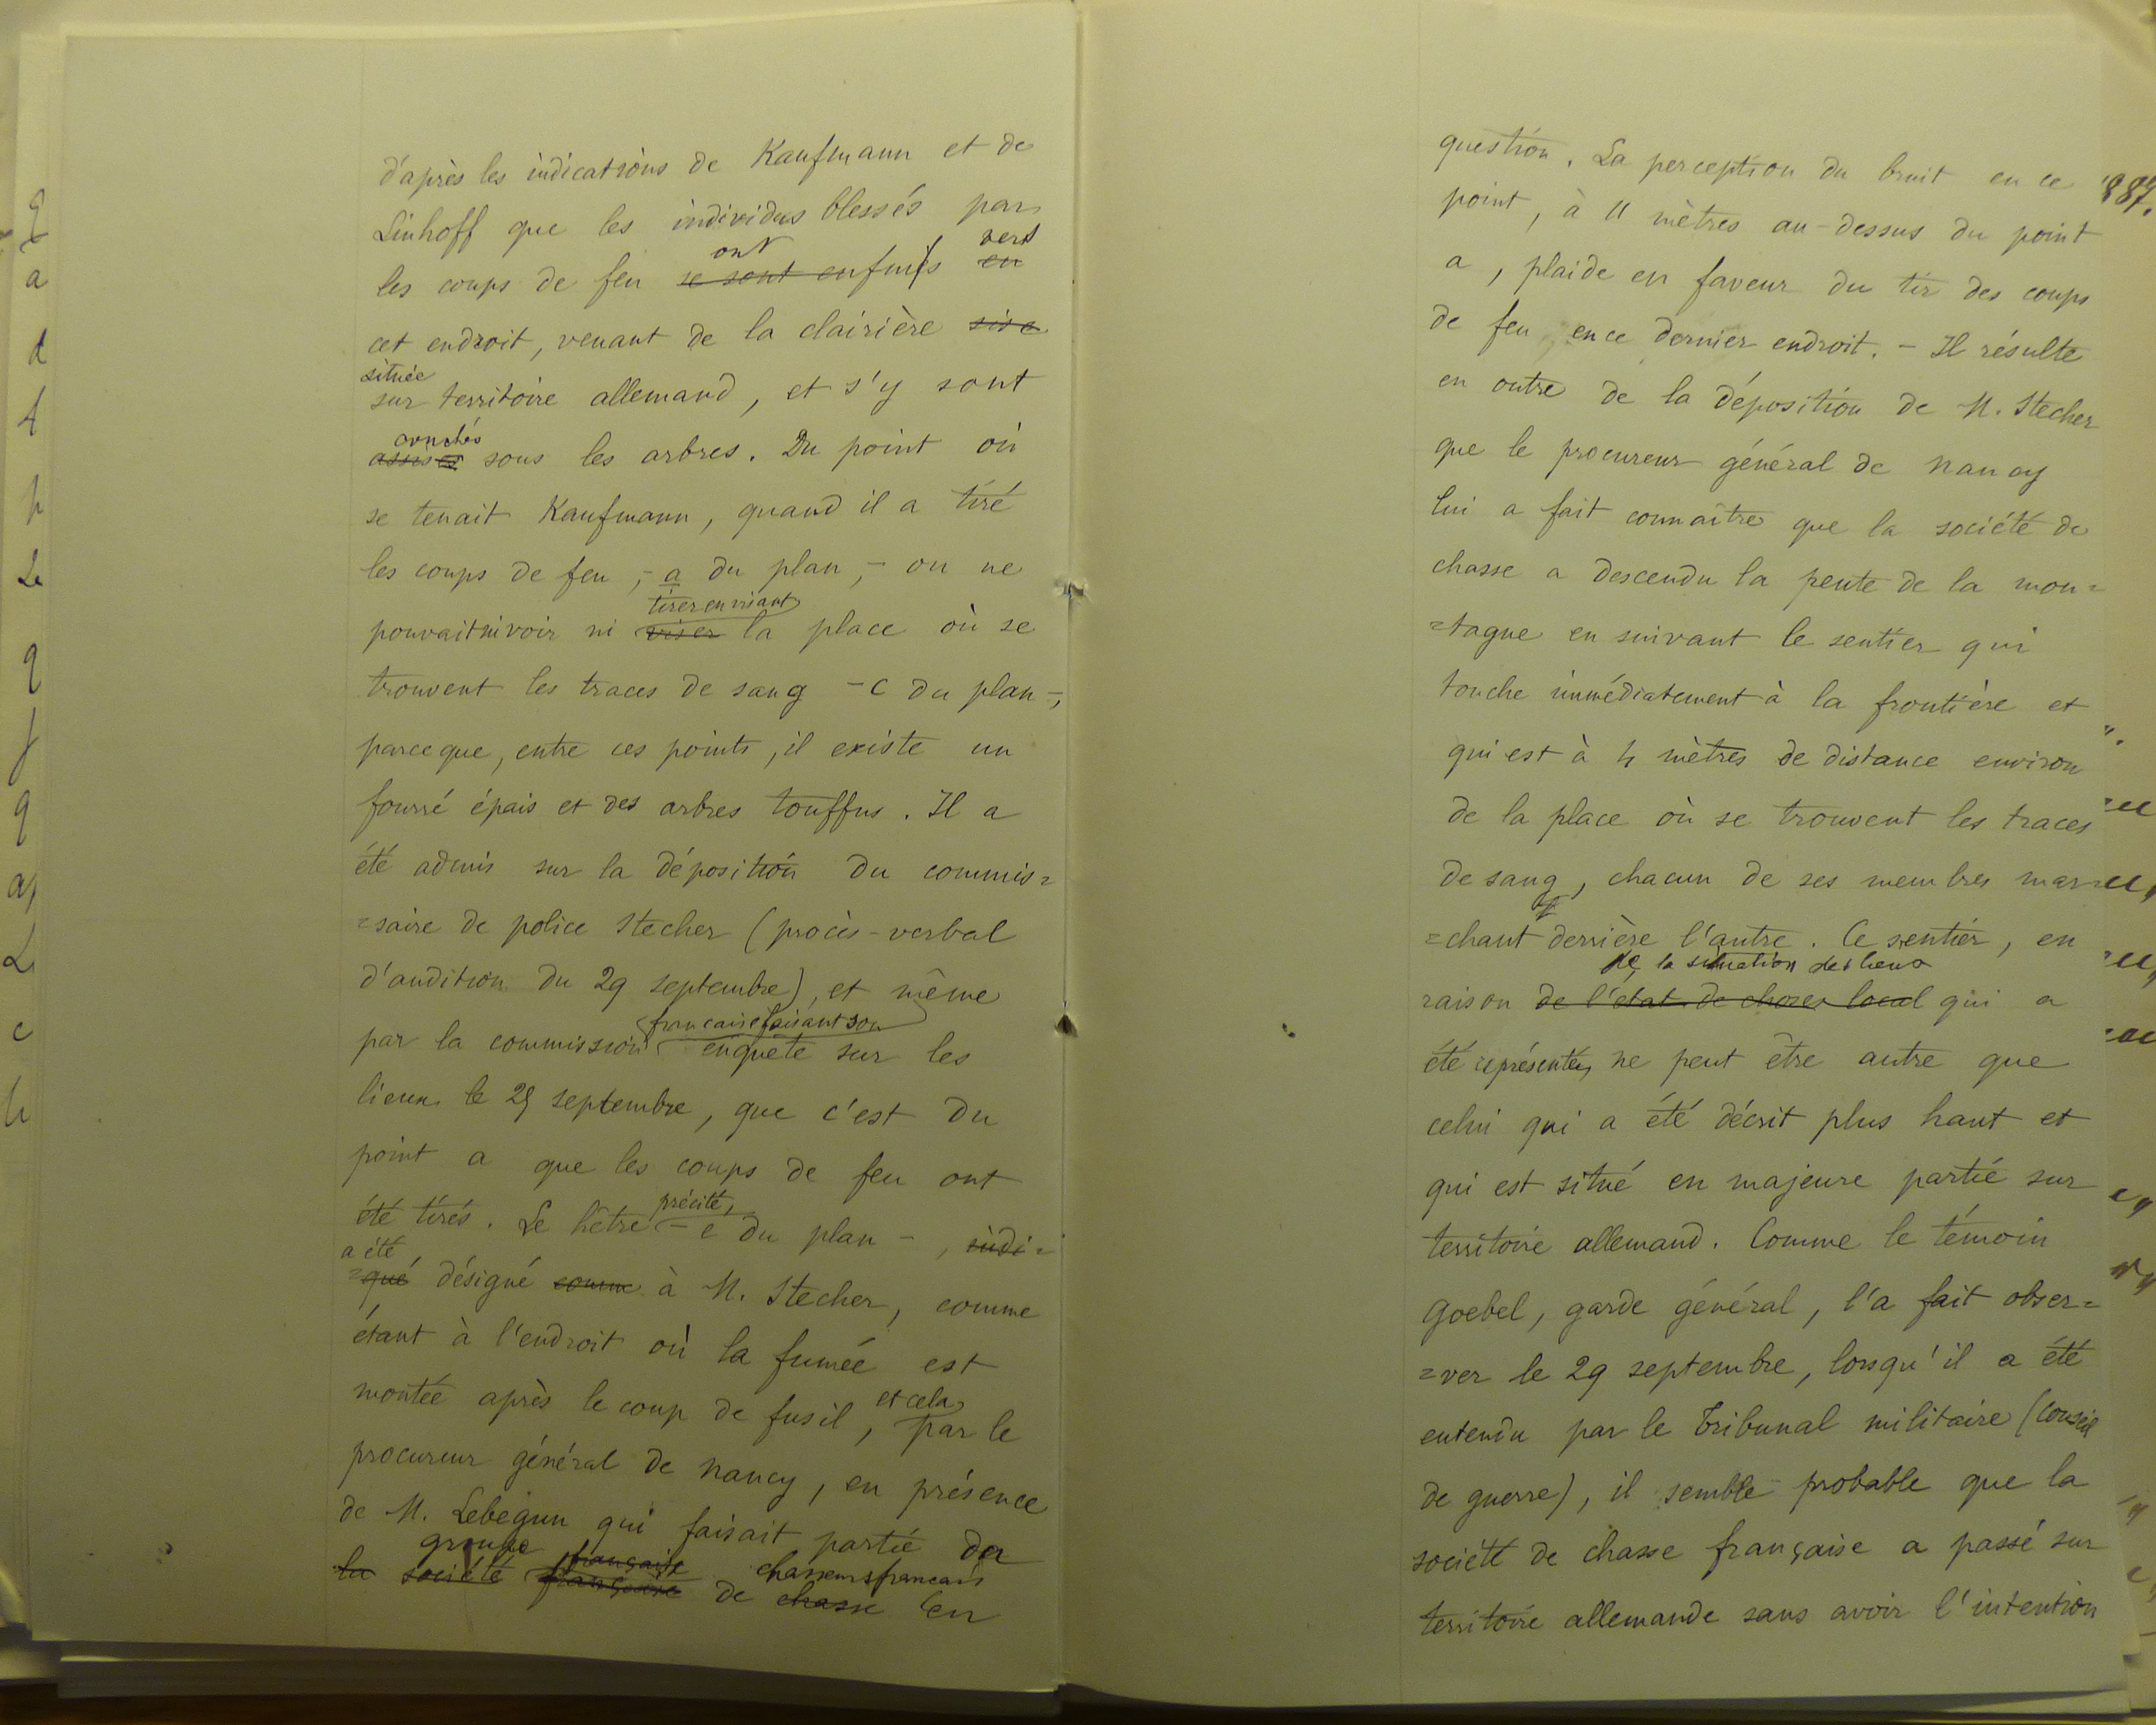 d'après les indications de Kaufmann et de
Linhoff que les individus blessés par
ont vers
les coups de feu se sont enfuis en
cet endroit, venant de la clairière sise
située
sur territoire allemand, et s'y sont
couchés
assis sous les arbres. Du point où
se tenait Kaufmann, quand il a tiré
les coups de feu, - a du plan, - on ne
tirer en visant
pouvait ni voir ni viser la place où se
trouvent les traces de sang - c du plan -,
parce que, entre ces points, il existe un
fourré épais et des arbres touffus. Il a
été admis sur la déposition du commis=
=saire de police Stecher (procès-verbal
d'audition du 29 septembre), et même
française faisant son
par la commission enquête sur les
lieux le 25 septembre, que c'est du
point a que les coups de feu ont
précité,
été tirés. Le hêtre - e du plan -, indi=
a été
=qué désigné comme à M. Stecher, comme
étant à l'endroit où la fumée est
et cela
montée après le coup de fusil, par le
procureur général de Nancy, en présence
de M. Lebègun qui faisait partie du
groupe française chasseurs français
la société française de chasse en
question. La perception du bruit en ce
point, à 11 mètres au-dessus du point
a, plaide en faveur du tir des coups
de feu, en ce dernier endroit. - Il résulte
en outre de la déposition de M. Stecher
que le procureur général de Nancy
lui a fait connaître que la société de
chasse a descendu la pente de la mon=
=tagne en suivant le sentier qui
touche immédiatement à la frontière et
qui est à 4 mètres de distance environ
de la place où se trouvent les traces
de sang, chacun de ses membres mar=
=chant derrière l'autre. Ce sentier, en
de la situation des lieux
raison de l'état de choses local qui a
été représenté, ne peut être autre que
celui qui a été décrit plus haut et
qui est situé en majeure partie sur
territoire allemand. Comme le témoin
Goebel, garde général, l'a fait obser=
=ver le 29 septembre, lorsqu'il a été
entendu par le Tribunal militaire (Conseil
de guerre), il semble probable que la
société de chasse française a passé sur
territoire allemande sans avoir l'intention